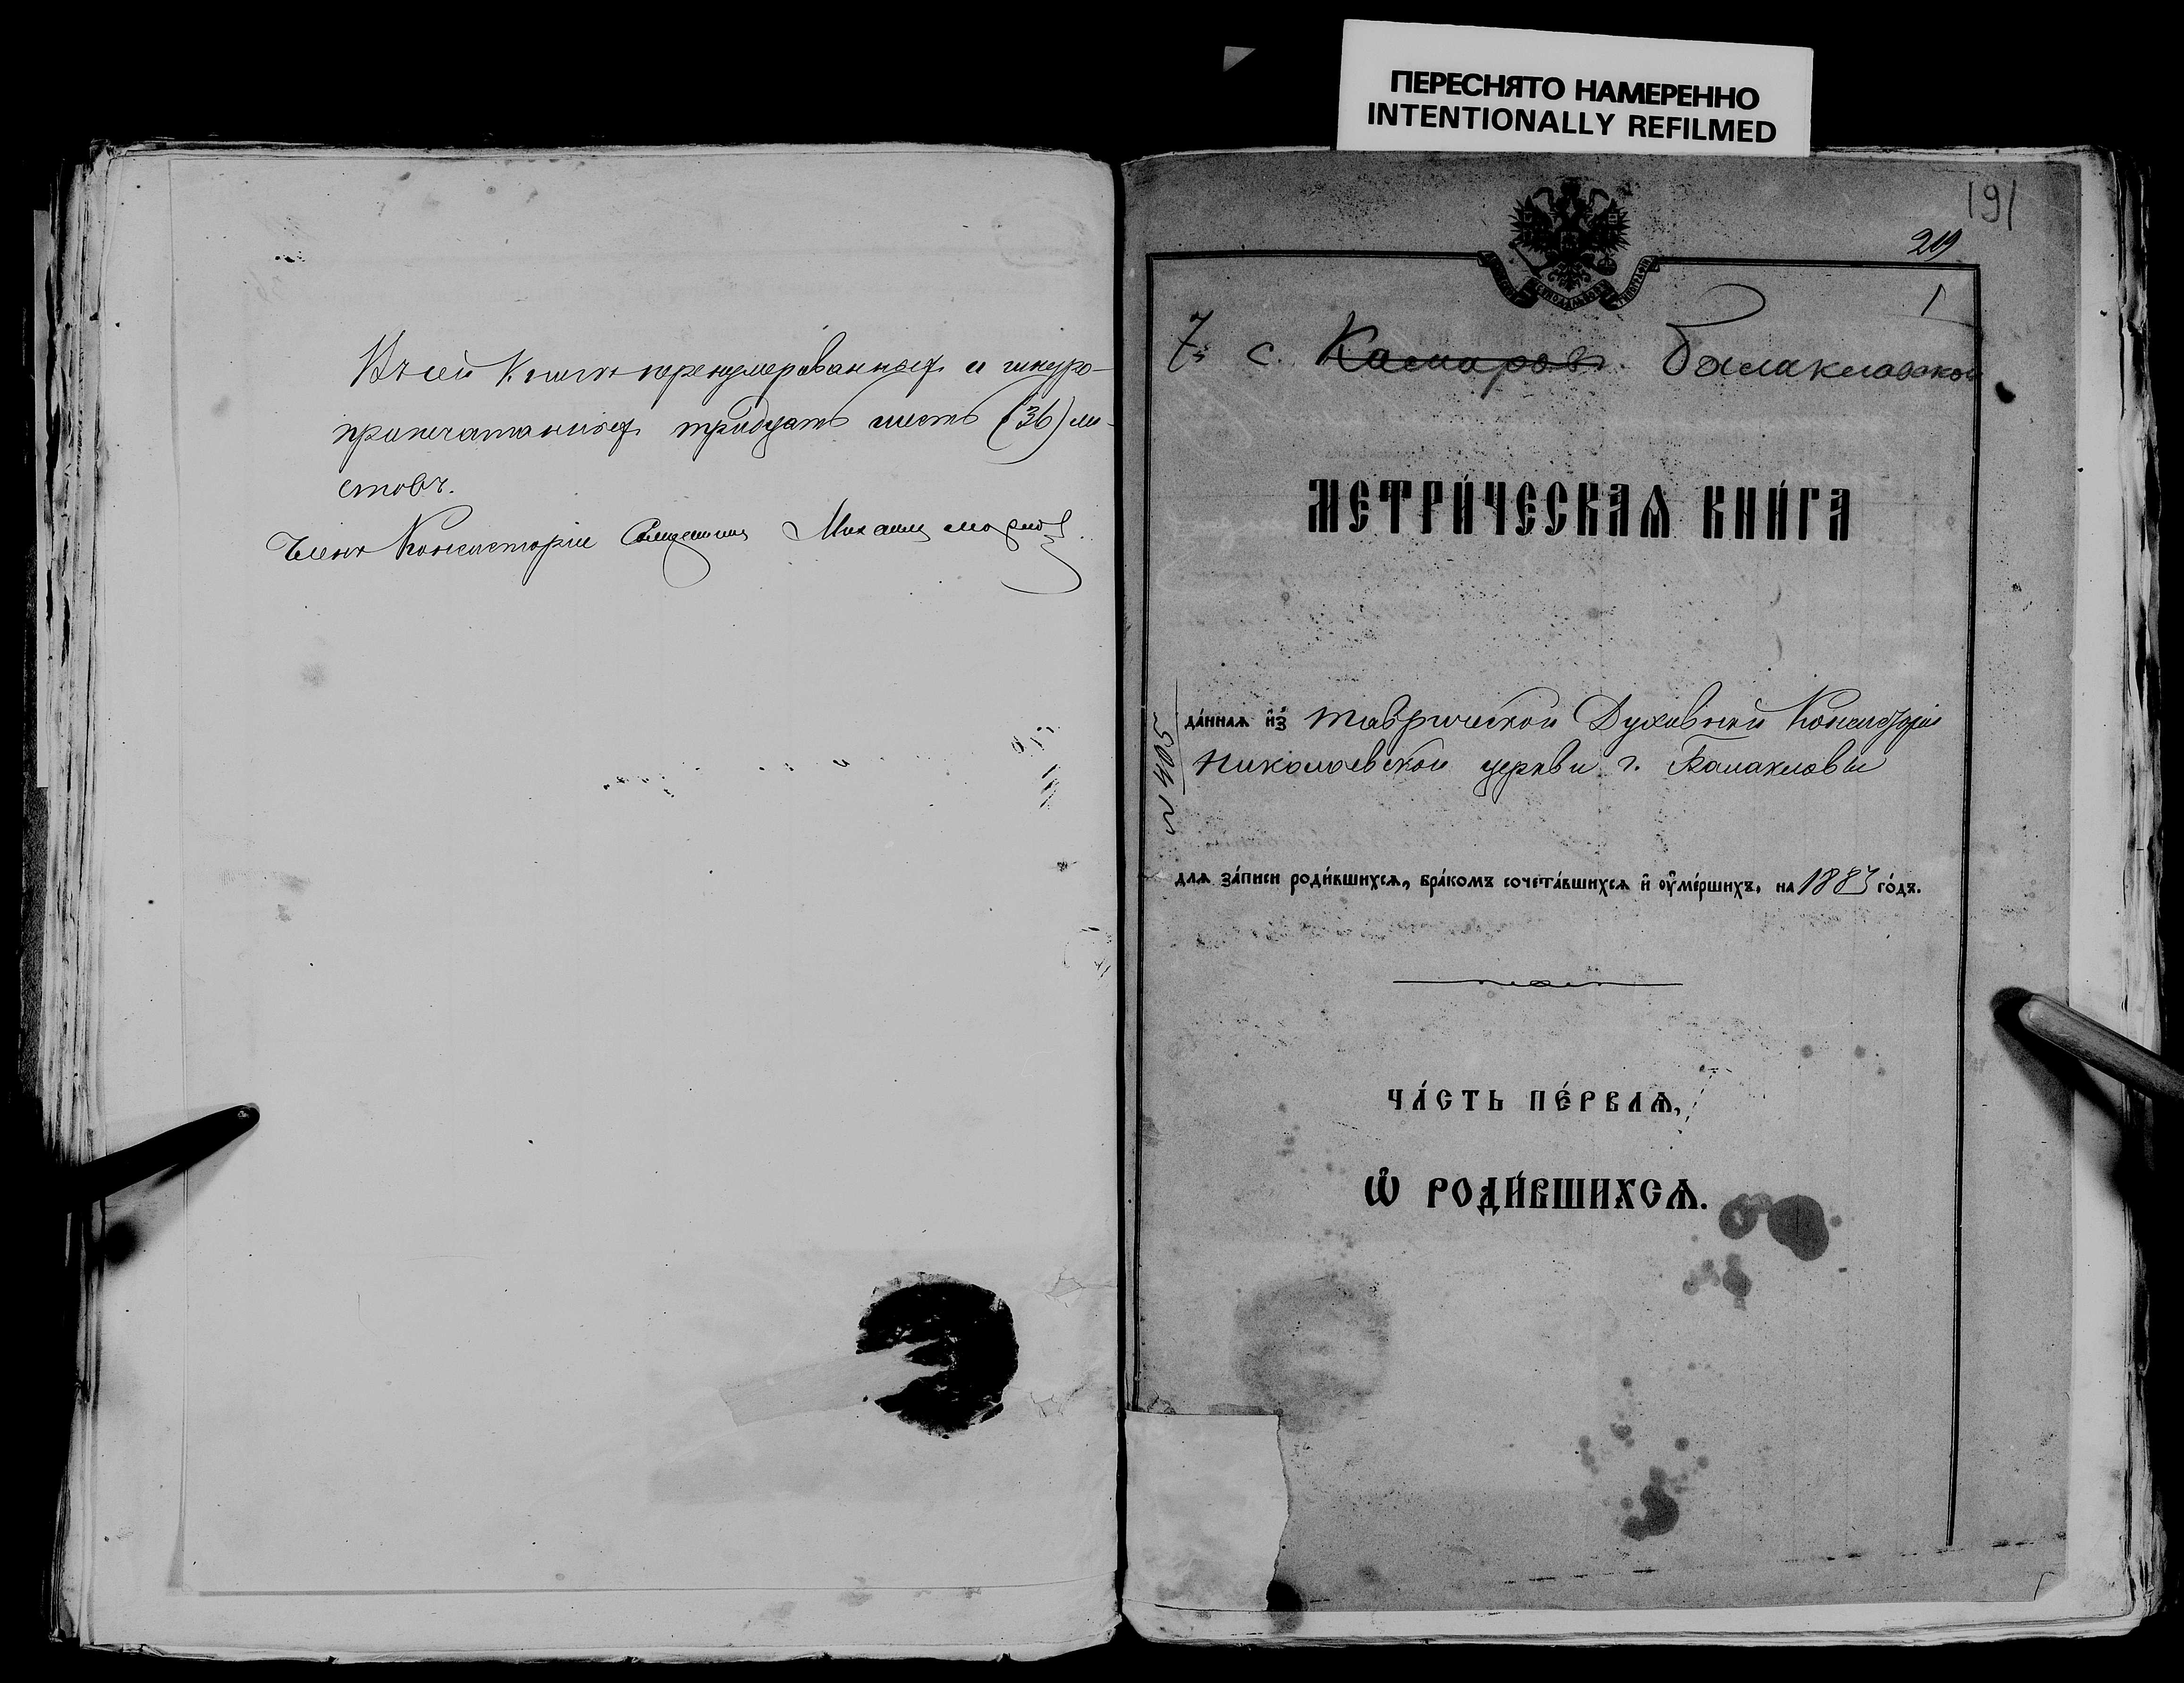 ПЕРЕСНЯТО НАМЕРЕННО
INTENTIONALLY REFILMED
Въ сей Книгѣ пренумерованныхъ и шнуро-
припечатанныхъ тридцать шесть (36) ли-
стовъ.
Членъ Консисторіи Священникъ Михаилъ
191
219
1
7. с. Камаровъ. Балаклавской
МЕТРИ́ЧЕСКАѦ КНИ́ГА
да́ннаѧ и҆з̾ Таврической Духовной Консисторіи
Николаевской церкви г. Балаклавы
для за́писи роди́вшихсѧ, бра́комъ сочета́вшихсѧ и҆ ᲂу҆ме́ршихъ, на 1883 го́дъ.
ЧА́СТЬ ПЕ́РВАѦ,
Ѡ҆ РОДИ́ВШИХСѦ.